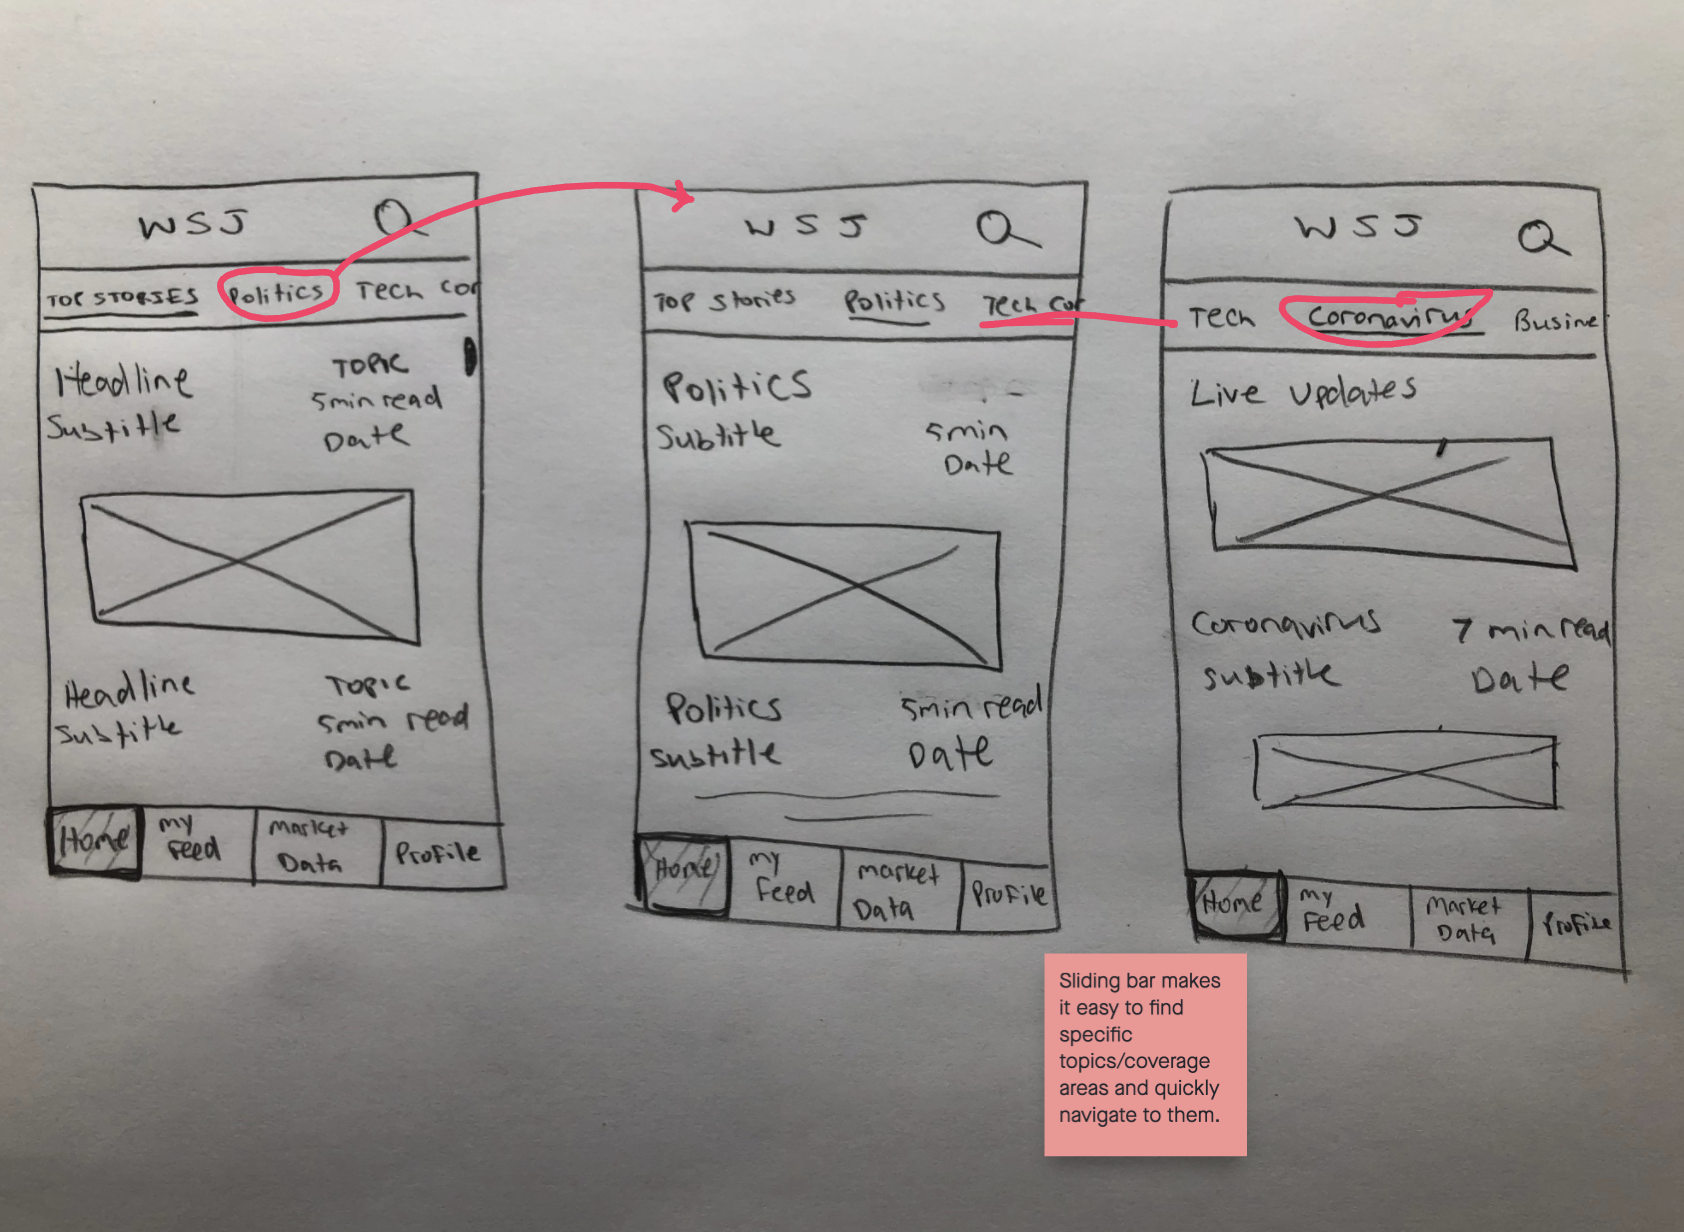 WSJ
TOP STORIES Politics Tech Cor
Headline TOPIC
Subtitle 5min read
Date
Headline TOPIC
Subtitle 5min read
Date
Home My Feed Market Data Profile
WSJ
Top Stories Politics Tech Cor
Politics
Subtitle 5min
Date
Politics 5min read
Subtitle Date
Home My Feed Market Data Profile
WSJ
Tech Coronavirus Busine
Live Updates
Coronavirus 7 min read
Subtitle Date
Home My Feed Market Data Profile
Sliding bar makes
it easy to find
specific
topics/coverage
areas and quickly
navigate to them.